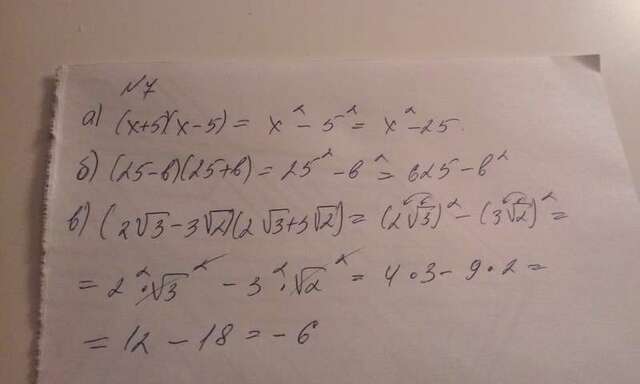 №7
а) (x+5)(x-5) = x² - 5² = x² - 25.
б) (25-b)(25+b) = 25² - b² = 625 - b²
в) (2√3 - 3√2)(2√3 + 3√2) = (2√3)² - (3√2)² =
= 2² · √3² - 3² · √2² = 4 · 3 - 9 · 2 =
= 12 - 18 = - 6